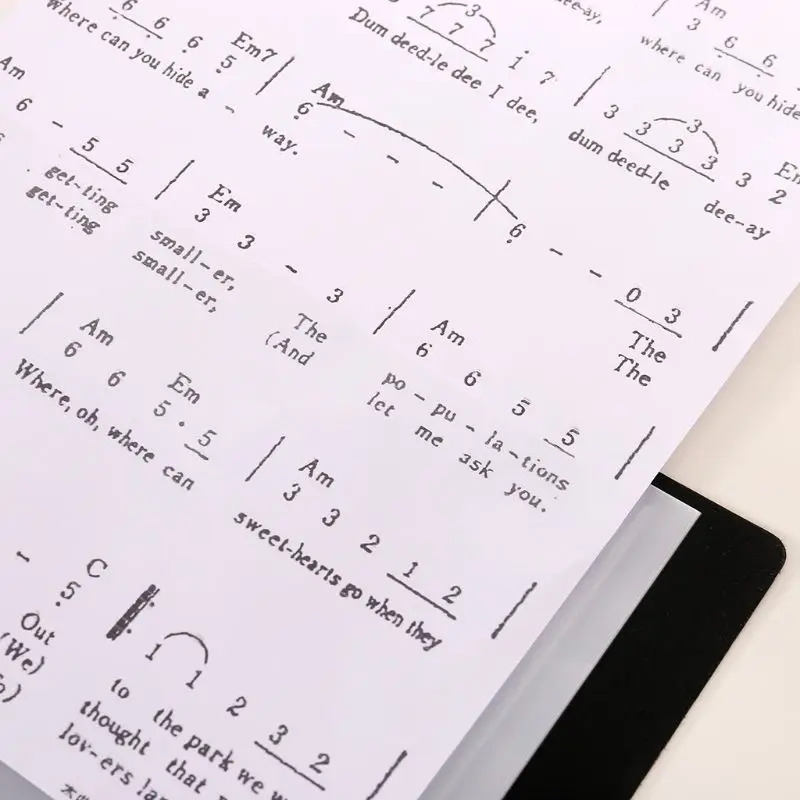 dee-ay,
Am
7 7 7 1 7 | 3 6 6
Dum deed-le dee I dee, where can you hide
6 6 6 5 | 3 3 3 3 3 2
Where can you hide a - way. dum deed-le dee-ay
Em7 Am
6 - - - 6 - - 0 3 |
The
The
Am Em
6 - 5 5 | 3 3 - 3 | 6 6 5 5 |
get-ting small-er, The po-pu-la-tions
get-ting small-er, (And let me ask you.
Am Em Am
| 6 6 5 . 5 | 3 3 2 1 2 |
Where, oh, where can sweet-hearts go when they
C
- 5 1 1 2 3 2 |
Out to the park we
(We) thought that
lov-ers